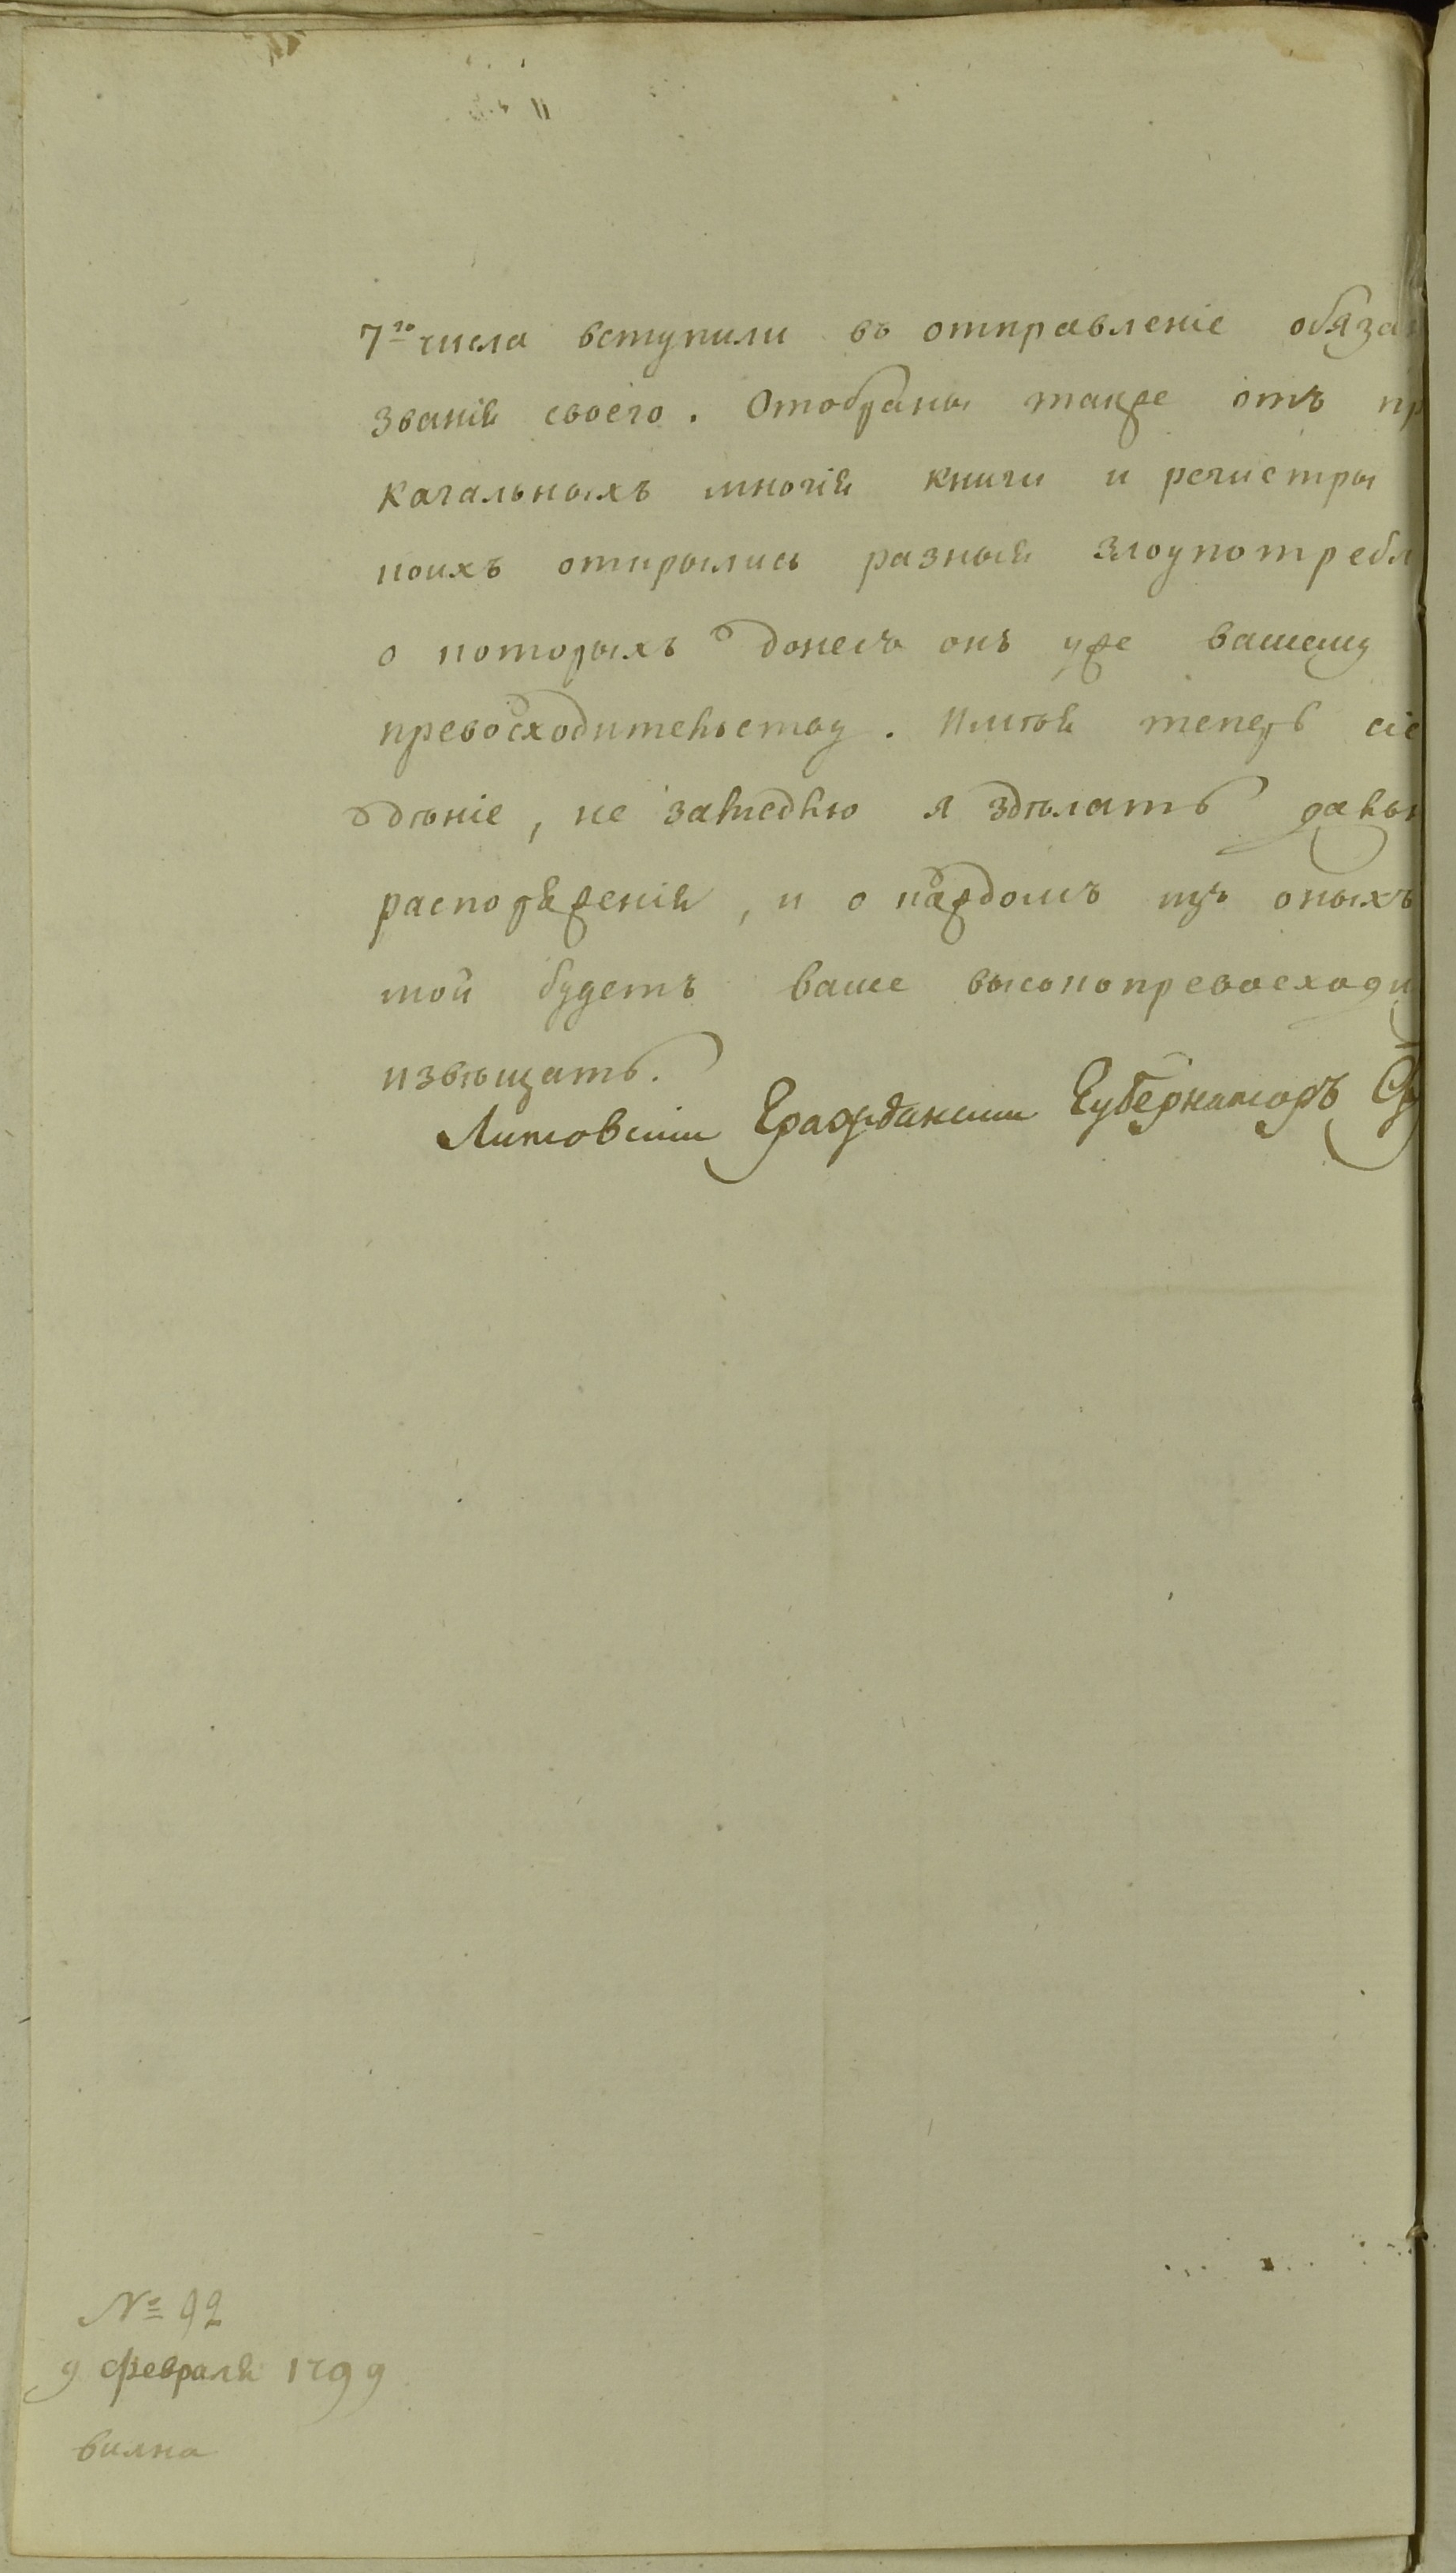 7го числа вступили въ отправленіе обязан
званія своего. Отобраны также отъ пр
кагальныхъ многія книги и регистры
коихъ открылись разныя злоупотребл
о которыхъ донесъ онъ уже вашему
превосходительству. Имѣя теперь сіе
дѣніе, не замедлю я здѣлать даль
распоряженія, и о каждомъ изъ оныхъ
мой будетъ ваше высокопревосходи
извѣщать.
Литовскіи Гражданскии Губернаторъ
№ 92
9 февраля 1799
вилна